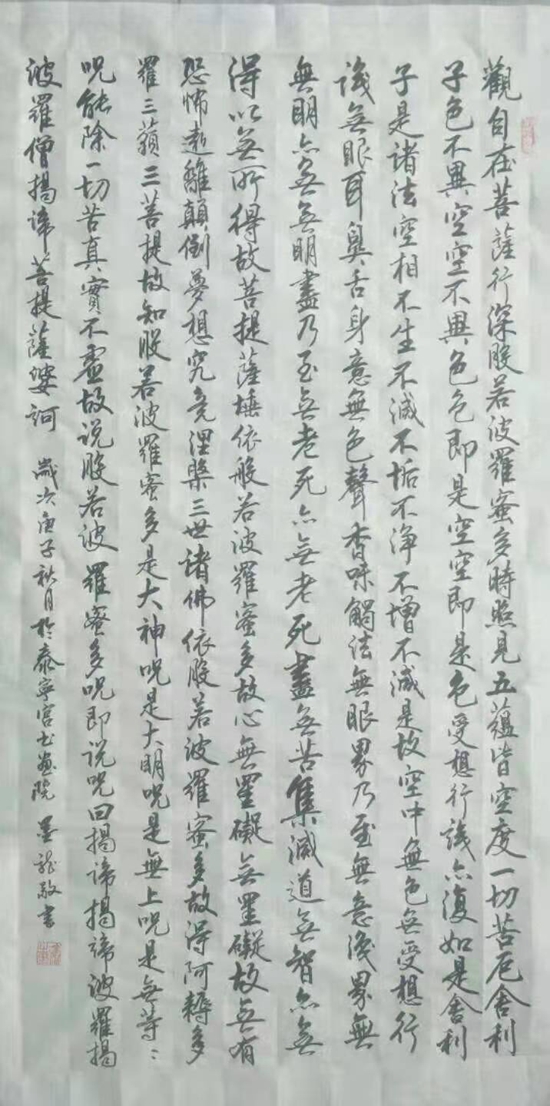 觀自在菩薩行深般若波羅蜜多時照見五蘊皆空度一切苦厄舍利
子色不異空空不異色色即是空空即是色受想行識亦復如是舍利
子是諸法空相不生不滅不垢不淨不增不減是故空中無色無受想行
識無眼耳鼻舌身意無色聲香味觸法無眼界乃至無意識界無
無明亦無無明盡乃至無老死亦無老死盡無苦集滅道無智亦無
得以無所得故菩提薩埵依般若波羅蜜多故心無罣礙無罣礙故無有
恐怖遠離顛倒夢想究竟涅槃三世諸佛依般若波羅蜜多故得阿耨多
羅三藐三菩提故知般若波羅蜜多是大神呪是大明呪是無上呪是無等〻
呪能除一切苦真實不虛故说般若波羅蜜多呪即说呪曰揭諦揭諦波羅揭
波羅僧揭諦菩提薩婆訶 歲次庚子秋月於泰寧宮书画院 墨龍敬書